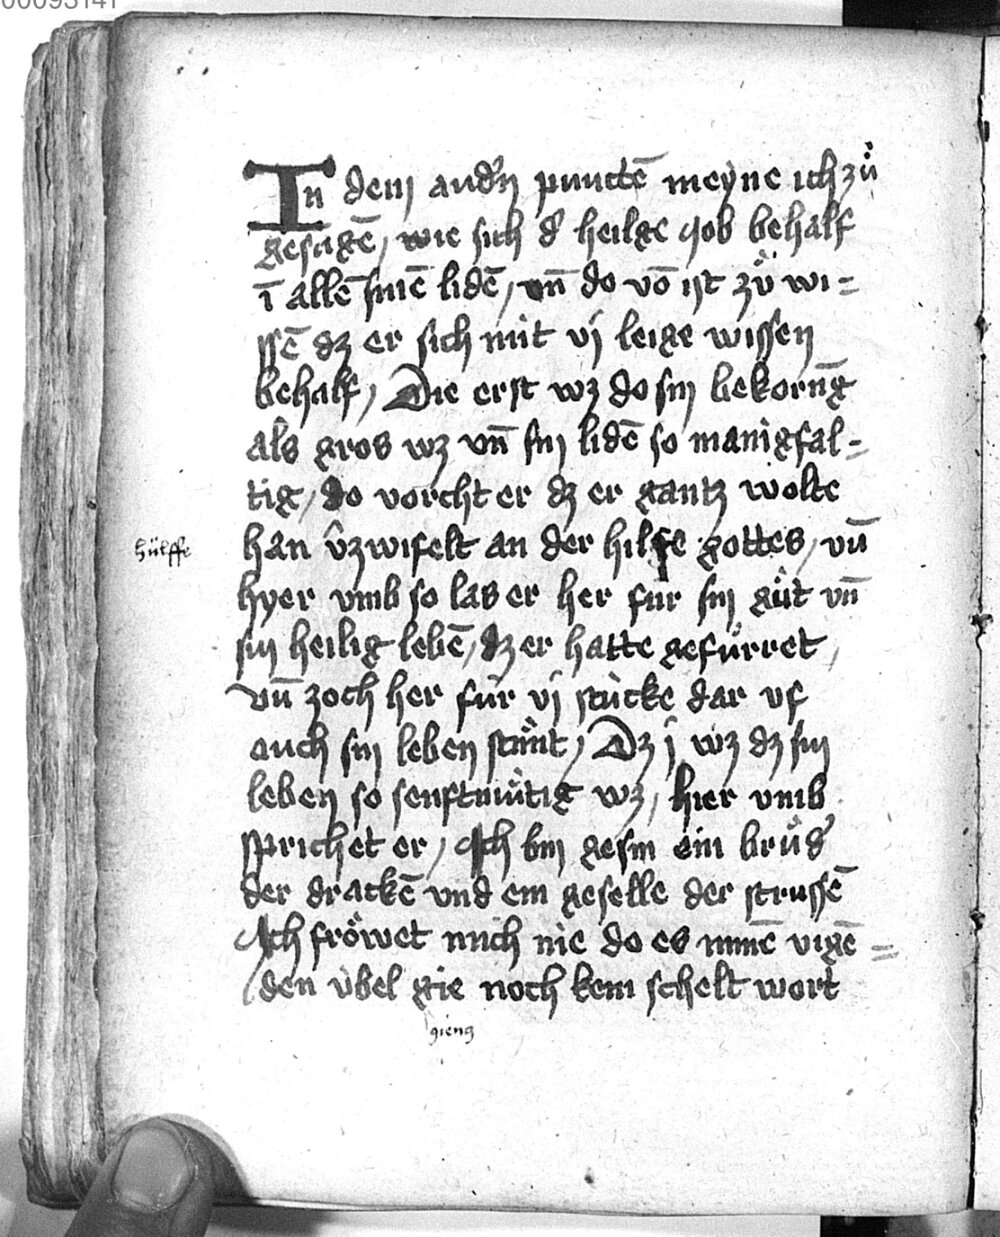 00093141
In dem andˀn punctē meyne ich zů
gesagē / wie sich dˀ heilge iob behalf
ī allē sinē lidē / vn̄ do vō ist zů wi=
ssē dz er sich mit vj leige wissen
behalf / Die erst wz do sin bekorūg
als gros wz vn̄ sin lidē so manigfal=
tig / do vorcht er dz er gantz wolte
han v̂zwifelt an der hilfe gottes / vn̄
hülffe
hyer vmb so las er her fur sin gůt vn̄
sin heilig lebē / dz er hatte gefůrret /
vn̄ zoch her fúr vj stúcke dar vf
auch sin leben stůnt / Dz j wz dz sin
leben so senftmůtig wz / hier vmb
sprichet er / Ich bin gesin ein brůdˀ
der drackē vnd ein geselle der strussē
Ich frŏwet mich nie do es minē vigē=
den v̇bel gie noch kein schelt wort
gieng